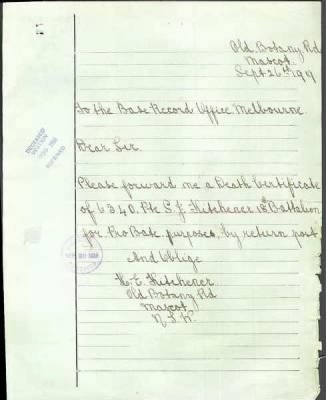 Old Botany Rd
Mascot
Sept 26th 1917
To the Base Record Office Melbourne
Dear Sir.
Please forward me a Death Certificate
of 6340. Pte S. J. Kitchener 18th Battalion
for ProBate purposes, by return post
And Oblige
H. E. Kitchener
Old Botany Rd
Mascot
N. S. W.